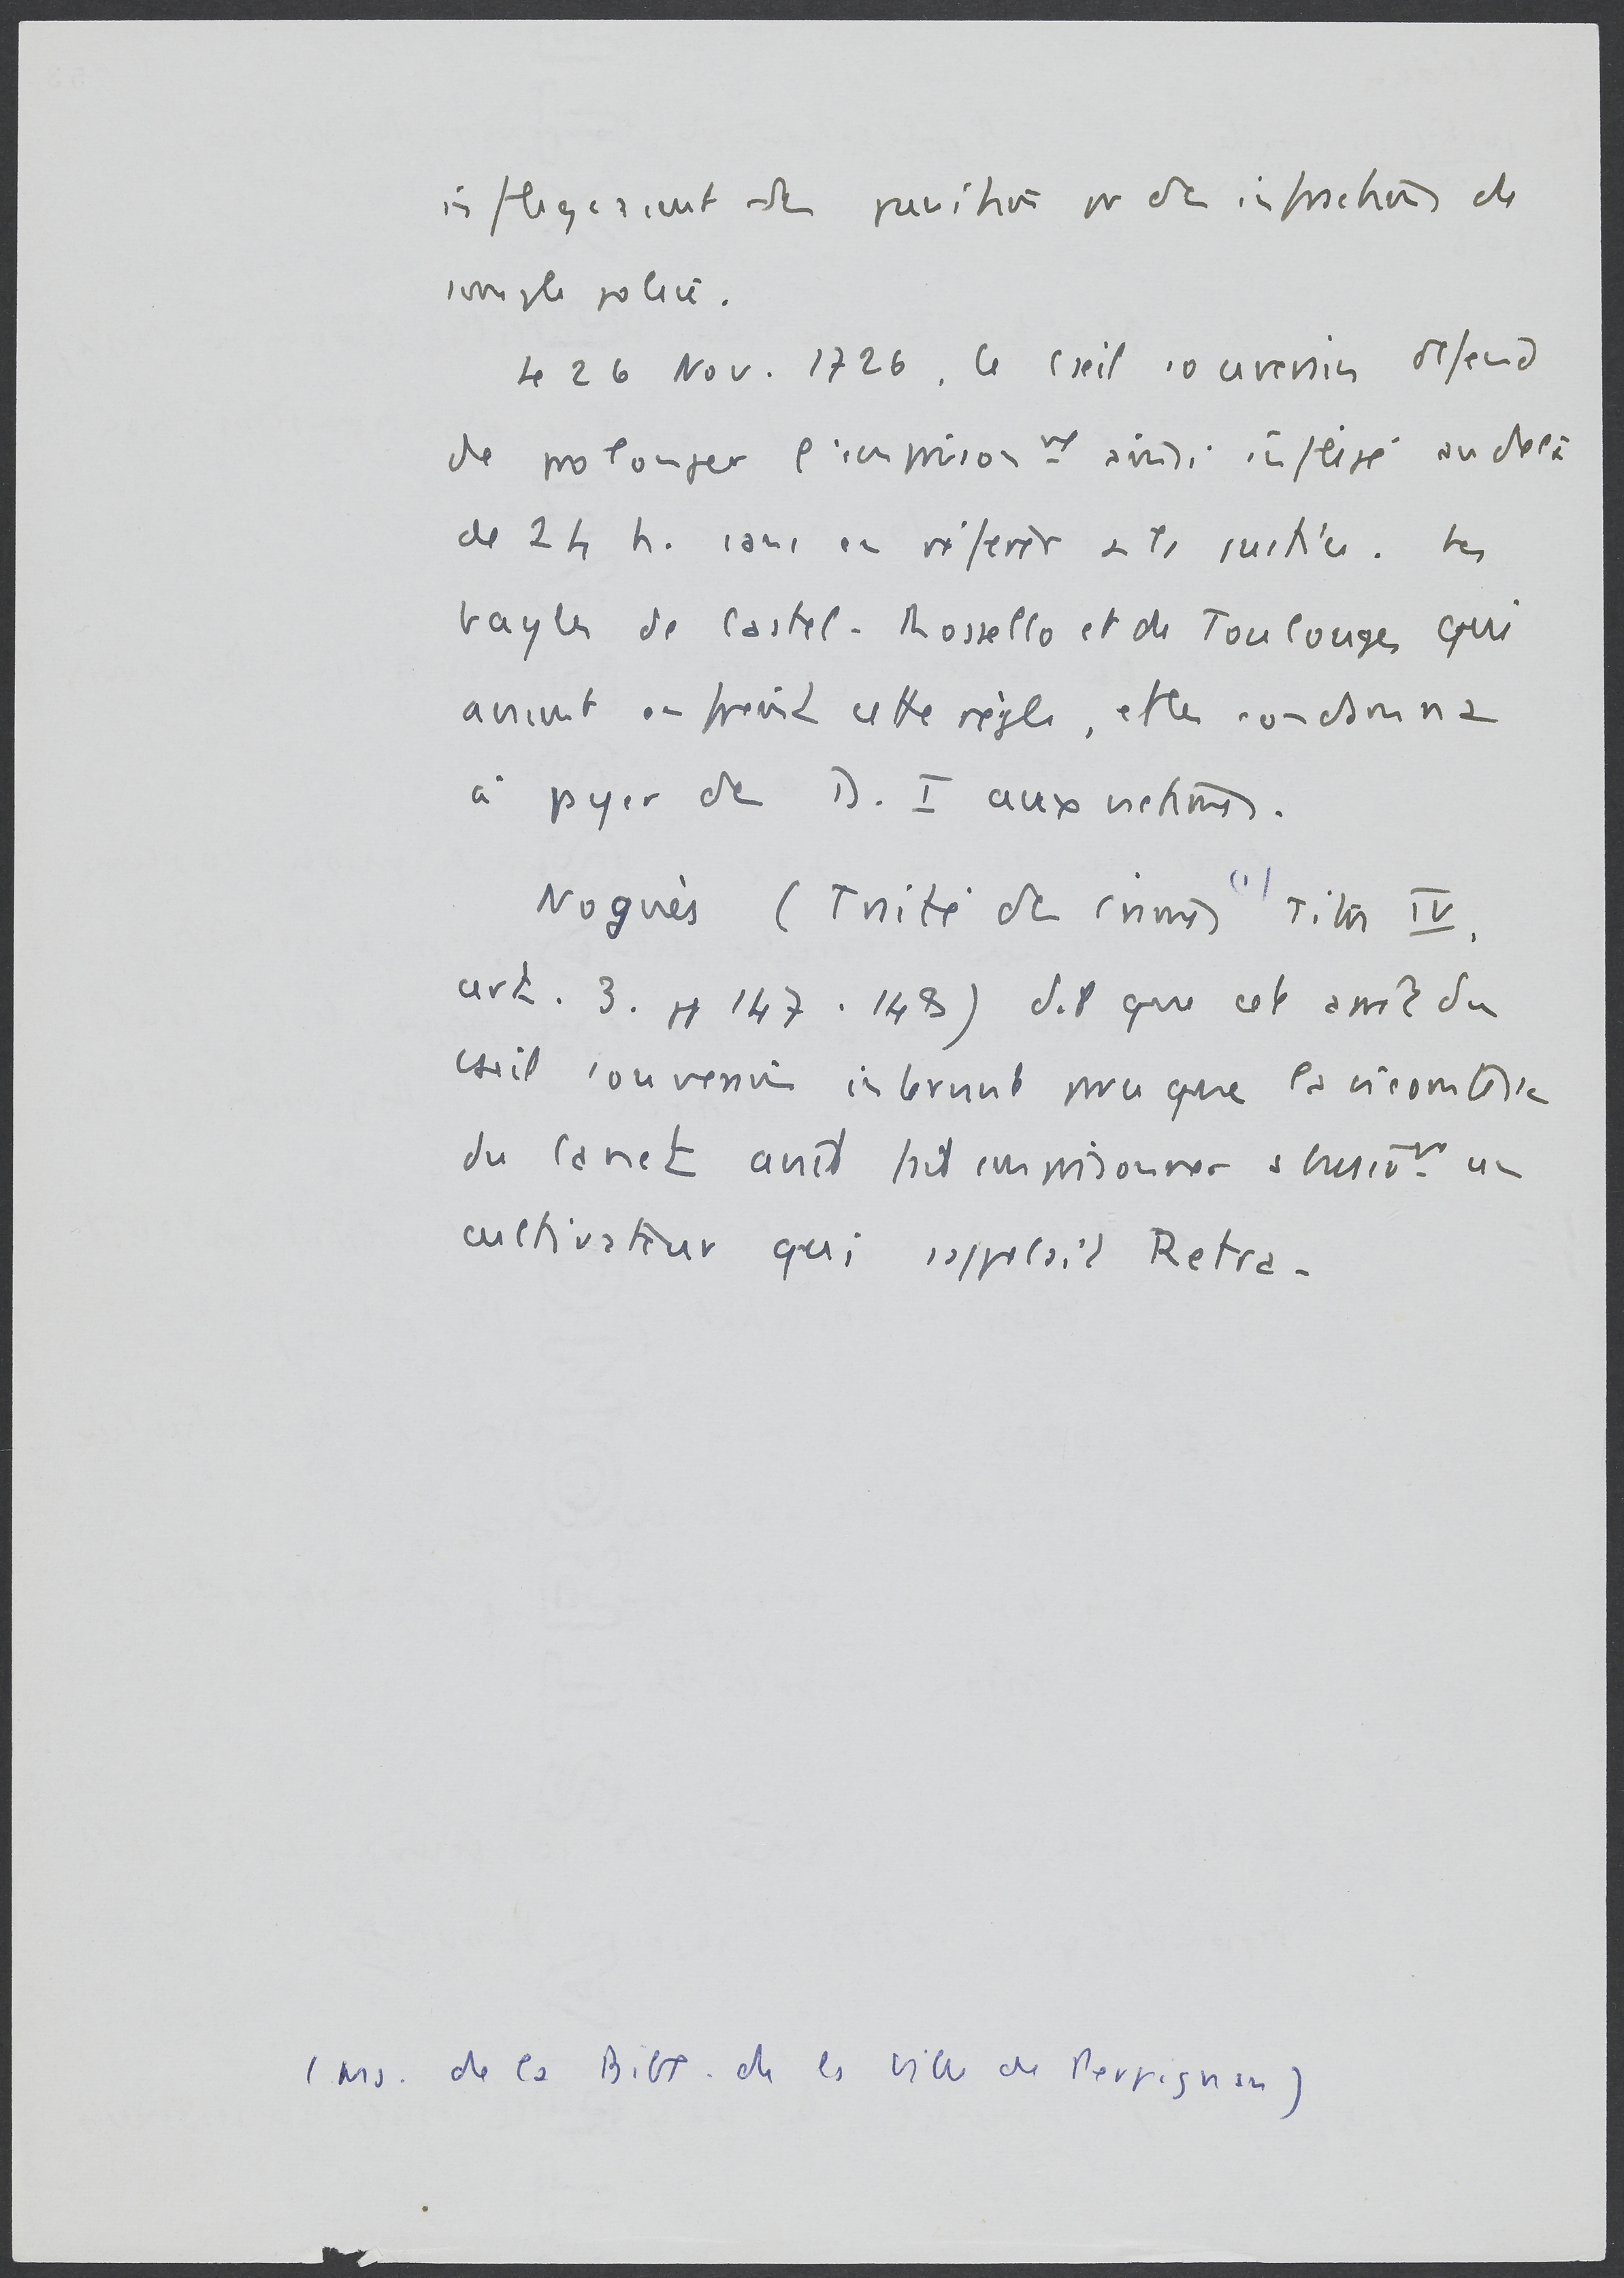 infligeaient des punitions pr des infractions de
simple police.
Le 26 Nov. 1726, le Cseil souverain défend
de prolonger l'emprisonnt ainsi infligé au delà
de 24 h. sans en référer à la justice. Les
bayles de Castel-Rossello et de Toulouges qui
avaient enfreint cette règle, et les condamna
à payer des D. I aux victimes.
Noguès (Traité des crimes (1) Titre IV,
art. 3. pp 147.148) dit que cet arrêt du
Cseil souverain intervint parce que la vicomtesse
du Canet avait fait emprisonner abusivt un
cultivateur qui s'appelait Retra-
(ms. de la Bibl. de la ville de Perpignan)